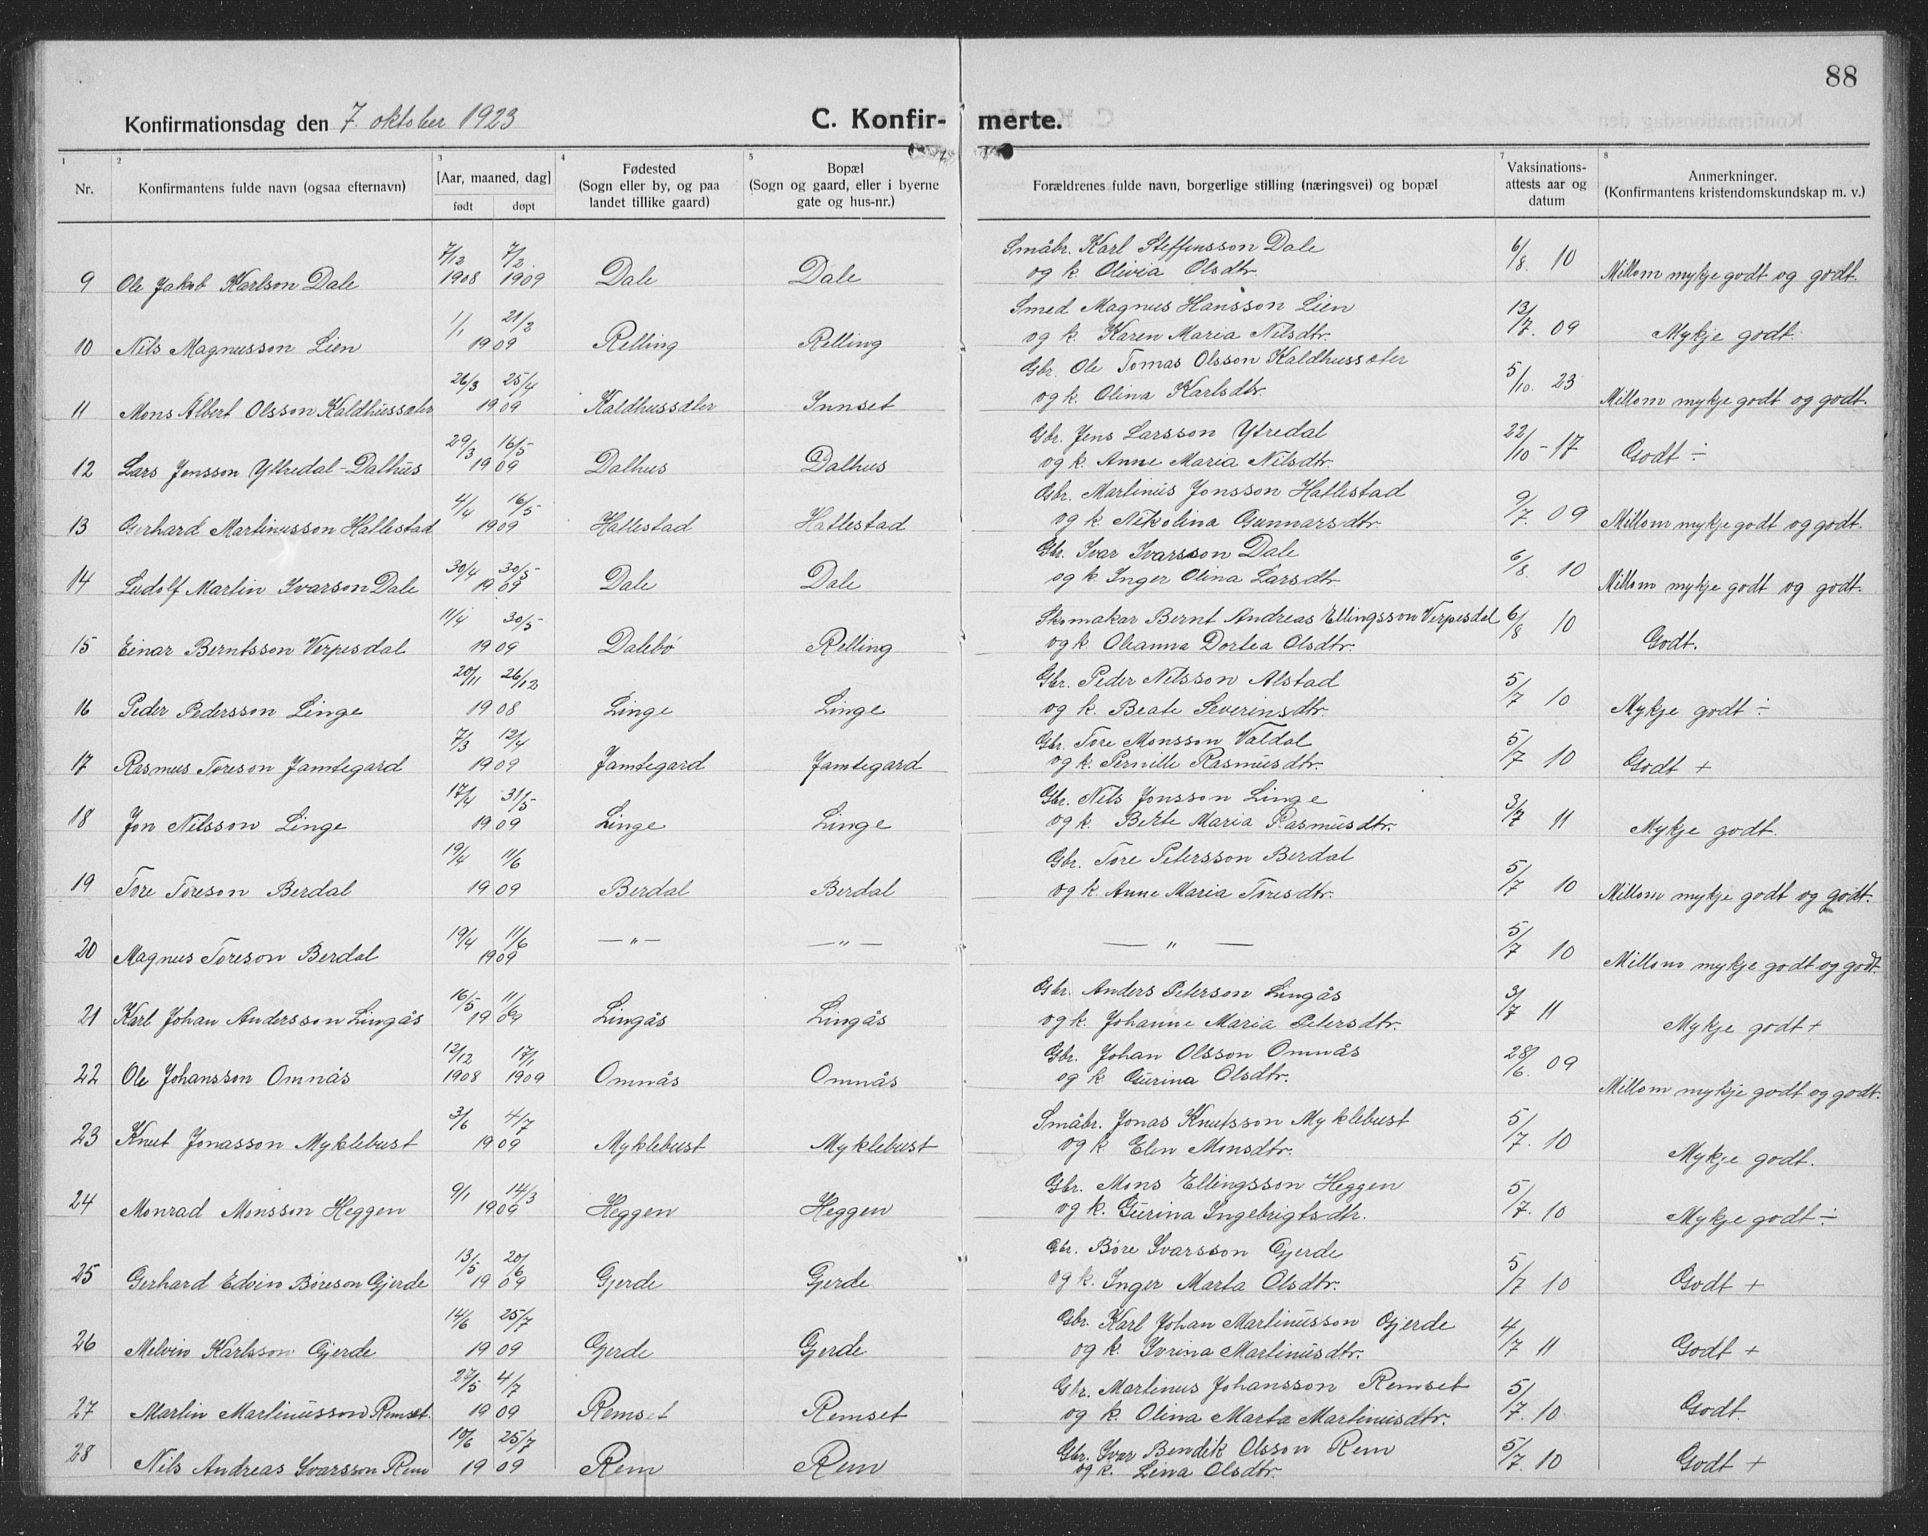 88
Konfirmationsdag den 7. oktober 1923 C. Konfir- merte.
1 2 3 4 5 7 8
Nr. Konfirmantens fulde navn (ogsaa efternavn) [Aar, maaned, dag] født døpt Fødested (Sogn eller by, og paa landet tillike gaard) Bopæl (Sogn og gaard, eller i byerne gate og hus-nr.) Forældrenes fulde navn, borgerlige stilling (næringsvei) og bopæl Vaksinations-attests aar og datum Anmerkninger. (Konfirmantens kristendomskundskap m. v.)
7/12 7/2 Småbr. Karl Steffensson Dale 6/8. 10
9 Ole Jakob Karlson Dale 1908 1909 Dale Dale og k. Olivia Olsdtr. Millom mykje godt og godt.
1/1 21/2 Smed Magnus Hansson Lien 13/7. 09
10 Nils Magnusson Lien 1909 Relling Relling og k. Karen Maria Nilsdtr. Mykje godt.
26/3 25/4 Gbr. Ole Tomas Olsson Kaldhussæter 5/10. 23
11 Mons Albert Olsson Kaldhussæter 1909 Kaldhussæter Innset og k. Olina Karlsdtr. Millom mykje godt og godt.
29/3 16/5 Gbr. Jens Larsson Ytredal 22/10 - 17
12 Lars Jensson Ytredal-Dalhus 1909 Dalhus Dalhus og k. Anne Maria Nilsdtr. Godt ÷
4/4 16/5 Gbr. Martinus Jonsson Hallestad 9/7. 09
13 Gerhard Martinusson Hallestad 1909 Hallestad Hallestad og k. Nikolina Gunnarsdtr. Millom mykje godt og godt.
30/4 30/5 Gbr. Ivar Ivarsson Dale 6/8 10
14 Ludolf Martin Ivarson Dale 1909 Dale Dale og k. Inger Olina Larsdtr. Millom mykje godt og godt.
11/4 30/5 Skomakar Bernt Andreas Ellingsson Verpesdal 6/8 10
15 Einar Berntsson Verpesdal 1909 Dalebø Relling og k. Oleanna Dortea Olsdtr. Godt.
20/11 26/12 Gbr. Peder Nilsson Alstad 5/7 10
16 Peder Pedersson Linge 1908 Linge Linge og k. Beate Severinsdtr. Mykje godt ÷
7/3 12/4 Gbr. Tore Monsson Valdal 5/7 10
17 Rasmus Toreson Jamtegard 1909 Jamtegard Jamtegard og k. Pernille Rasmusdtr. Godt +
17/4 31/5 Gbr. Nils Jonsson Linge 3/7 11
18 Jon Nilsson Linge 1909 Linge Linge og k. Berte Maria Rasmusdtr. Mykje godt.
19/4 11/6 Gbr. Tore Petersson Berdal 5/7 10
19 Tore Toreson Berdal 1909 Berdal Berdal og k. Anne Maria Toresdtr. Millom mykje godt og godt.
19/4 11/6 — " — — " — — " — 5/7 10
20 Magnus Toreson Berdal 1909 Millom mykje godt og godt.
16/5 11/6 Gbr. Anders Peterson Lingås 3/7 11
21 Karl Johan Andersson Lingås 1909 Lingås Lingås og k. Johanne Maria Petersdtr. Mykje godt +
12/12 17/1 Gbr. Johan Olsson Omnås 28/6 09
22 Ole Johansson Omnås 1908 1909 Omnås Omnås og k. Gurina Olsdtr. Millom mykje godt og godt.
3/6 4/7 Småbr. Jonas Knutsson Myklebust 5/7. 10
23 Knut Jonasson Myklebust 1909 Myklebust Myklebust og k. Elen Monsdtr. Mykje godt.
9/1 14/3 Gbr. Mons Ellingsson Heggen 5/7. 10
24 Monrad Monsson Heggen 1909 Heggen Heggen og k. Gurina Ingebrigtsdtr. Mykje godt ÷
13/5 20/6 Gbr. Børe Ivarsson Gjerde 5/7 10
25 Gerhard Edvin Børeson Gjerde 1909 Gjerde Gjerde og k. Inger Marta Olsdtr. Godt +
14/6 25/7 Gbr. Karl Johan Martinusson Gjerde 4/7 11
26 Melvin Karlsson Gjerde 1909 Gjerde Gjerde og k. Ivrina Martinusdtr. Godt +
4/7 Gbr. Martinus Johansson Remset 5/7. 10
27 Martin Martinusson Remset. 1909 Remset Remset og k. Olina Marta Martinusdtr. Godt.
10/6 25/7 Gbr. Ivar Bendik Olsson Rem 5/7. 10
28 Nils Andreas Ivarsson Rem 1909 Rem Rem og k. Lina Olsdtr. Godt +